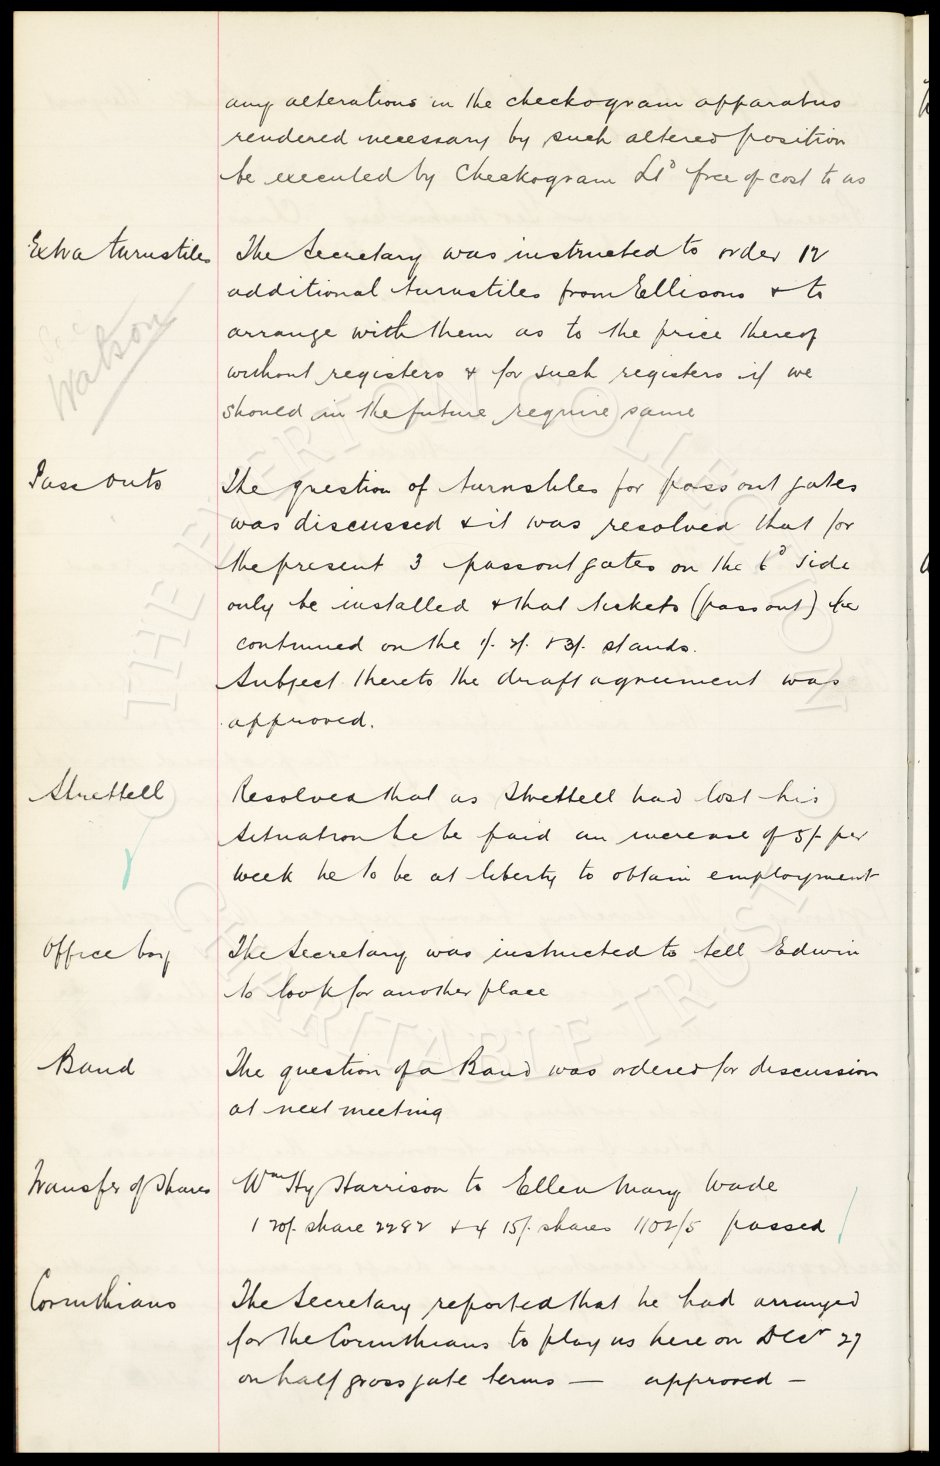 any alterations in the checkogram apparatus
rendered necessary by such altered position
be executed by Checkogram Ltd free of cost to us
Extra turnstiles
The Secretary was instructed to order 12
additional turnstiles from Ellisons & to
arrange with them as to the price thereof
without registers & for such registers if we
should in the future require same
Watson
Pass outs
The question of turnstiles for pass out gates
was discussed & it was resolved that for
the present 3 passout gates on the 6d side
only be installed & that tickets (pass out) be
continued on the 1/- 2/- & 3/- stands.
Subject thereto the draft agreement was
approved.
Strettell
Resolved that as Strettell had lost his
situation he be paid an increase of 5/- per
week he to be at liberty to obtain employment
Office boy
The Secretary was instructed to tell Edwin
to look for another place
Band
The question of a Band was ordered for discussion
at next meeting
Transfer of Shares
Wm Hy Harrison to Ellen Mary Wade
1 20/- share 2282 & 4 15/- shares 1102/5 passed
Corinthians
The Secretary reported that he had arranged
for the Corinthians to play us here on Decr 27
on half gross gate terms — approved —
THE EVERTON COLLECTION
CHARITABLE TRUST